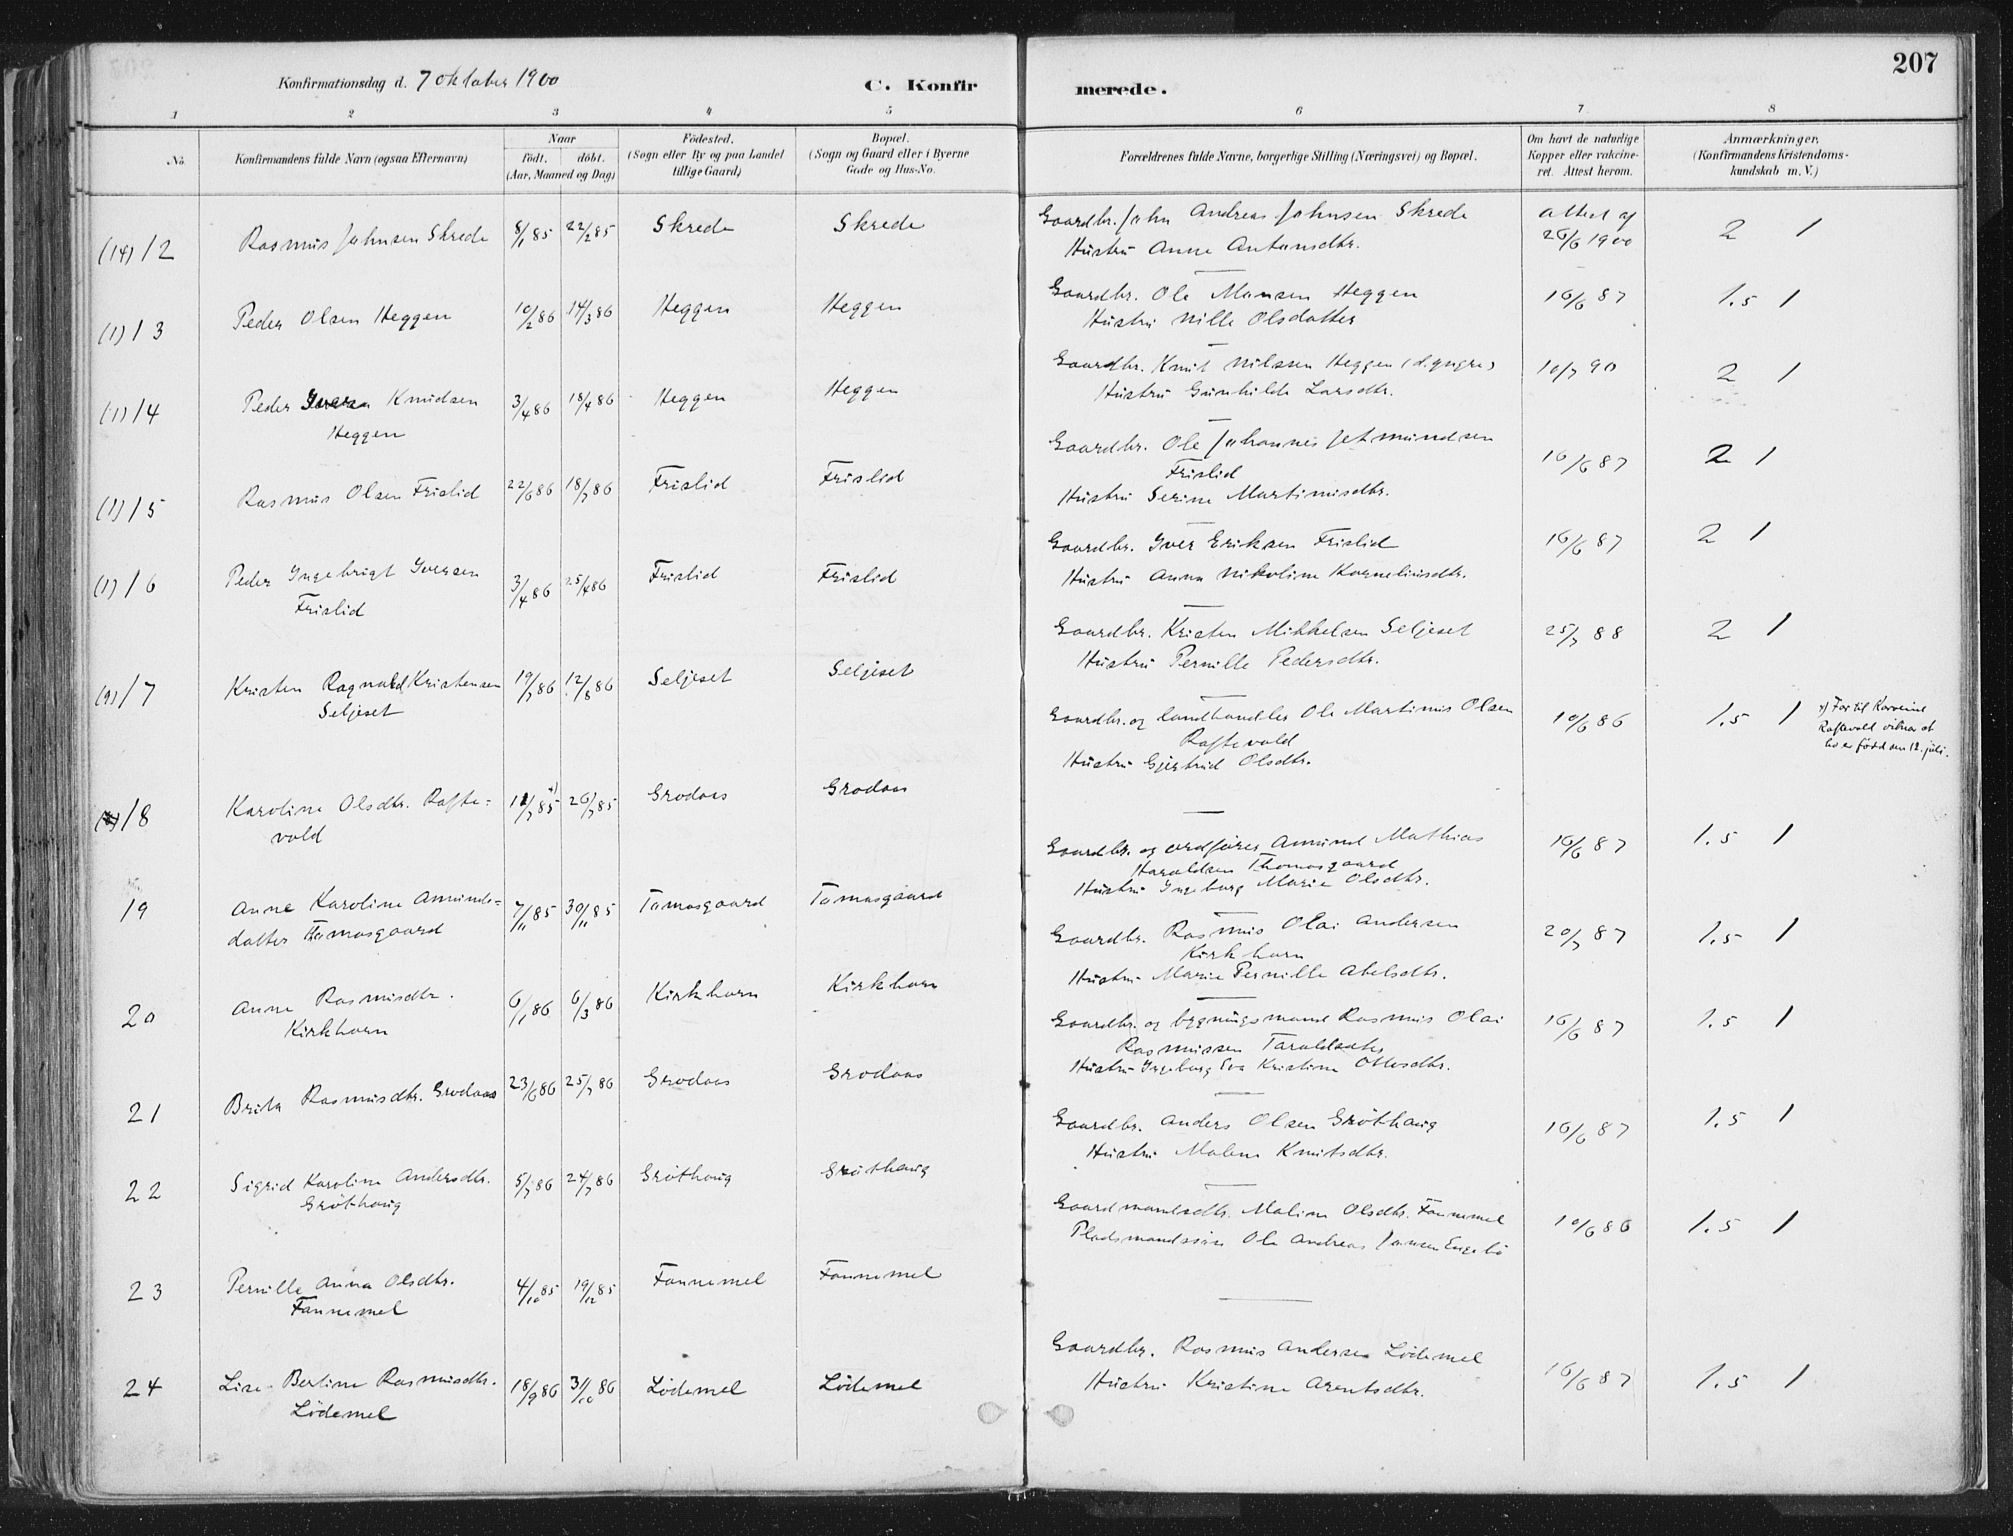 207
Konfirmationsdag d. 7 oktober 1900
C. Konfirmerede.
1 2 3 4 5 6 7 8
No.
Konfirmandens fulde Navn (ogsaa Efternavn)
Naar
födt. döbt.
(Aar, Maaned og Dag)
Födested.
(Sogn eller By og paa Landet
tillige Gaard)
Bopæl.
(Sogn og Gaard eller i Byerne
Gade og Hus-No.
Forældrenes fulde Navne, borgerlige Stilling (Næringsvei) og Bopæl.
Om havt de naturlige
Kopper eller vakcine-
ret. Attest herom.
Anmærkninger.
(Konfirmandens Kristendoms-
kundskab m. V.)
(14) 12 Rasmus Johnsen Skrede 8/1 85 22/2 85 Skrede Skrede
Gaardbr. John Andreas Johnsen Skrede
Hustru Anne Antonsdtr.
attest af
26/6 1900
2 1
(1) 13 Peder Olsen Heggen 10/2 86 14/3 86 Heggen Heggen
Gaardbr. Ole Monsen Heggen
Hustru Nille Olsdatter
16/6 87 1.5 1
(1) 14 Peder Knudsen
Heggen
3/4 86 18/4 86 Heggen Heggen
Gaardbr. Knut Nilssen Heggen (d. yngre)
Hustru Gunhilde Larsdtr.
10/7 90 2 1
(1) 15 Rasmus Olsen Frislid 22/6 86 18/7 86 Frislid Frislid
Gaardbr. Ole Johannes Jetmundsen
Frislid
Hustru Serine Martinusdtr.
16/6 87 2 1
(1) 16 Peder Ingebrigt Iversen
Frislid
3/4 86 25/4 86 Frislid Frislid
Gaardbr. Iver Eriksen Frislid
Hustru Anna Nikoline Korneliusdtr.
16/6 87 2 1
(9) 17 Kristen Ragnvald Kristensen
Seljeset
19/7 86 12/8 86 Seljeset Seljeset
Gaardbr. Kristen Mikkelsen Seljeset
Hustru Pernille Pedersdtr.
25/7 88 2 1
18 Karoline Olsdtr. Rafte=
vold
12/7 85 x) 26/7 85 Grodaas Grodaas
Gaardbr. og landhandler Ole Martinus Olsen
Raftevold
Hustru Gjertrud Olsdtr.
10/6 86 1.5 1
x) Far til Karoline
Raftevold vidner at
hu er född den 12. juli.
19 Anne Karoline Amunds=
datter Tomasgaard
7/11 85 30/11 85 Tomasgaard Tomasgaard
Gaardbr. og ordförer Amund Mathias
Haraldsen Thomasgaard
Hustru Ingeborg Marie Olsdtr.
16/6 87 1.5 1
20 Anne Rasmusdtr.
Kirkhorn
6/1 86 6/3 86 Kirkhorn Kirkhorn
Gaardbr. Rasmus Olai Andersen
Kirkhorn
Hustru Marie Pernille Abelsdtr.
20/7 87 1.5 1
21 Brita Rasmusdtr. Grodaas 23/6 86 25/7 86 Grodaas Grodaas
Gaardbr. og bygningsmand Rasmus Olai
Rasmussen Taraldsater
Hustru Ingeborg Eva Kristine Ottesdtr.
16/6 87 1.5 1
22 Sigrid Karoline Andersdtr.
Gröthaug
5/7 86 24/7 86 Gröthaug Gröthaug
Gaardbr. Anders Olsen Gröthaug
Hustru Malene Knutsdtr.
16/6 87 1.5 1
23 Pernille Anna Olsdtr.
Fannemel
4/10 85 19/12 85 Fannemel Fannemel
Gaardmandsdtr. Maline Olsdtr. Fannemel
Pladsmandssön Ole Andreas Jansen Engebö
10/6 86 1.5 1
24 Lise Bertine Rasmusdtr.
Lödemel
18/9 86 31/10 86 Lödemel Lödemel
Gaardbr. Rasmus Andersen Lödemel
Hustru Kristine Arentsdtr.
16/6 87 1.5 1